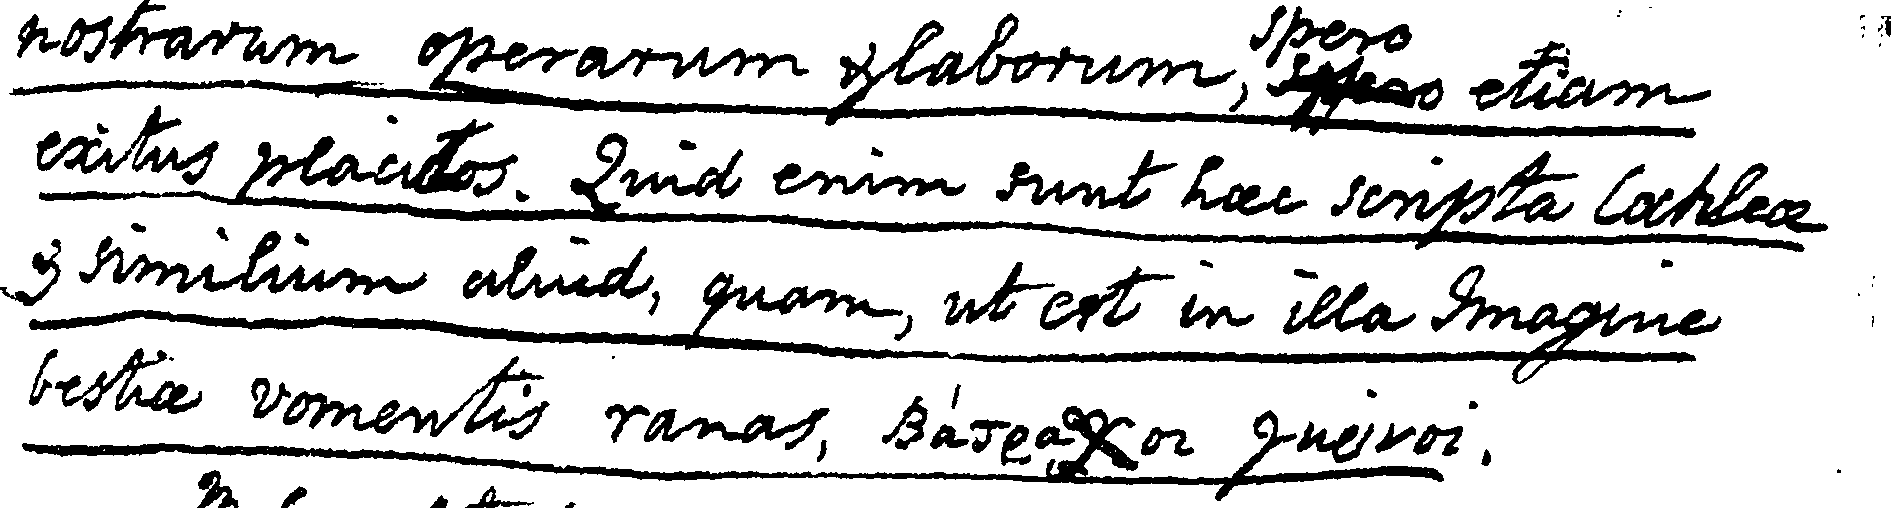 nostrarum operarum & laborum, spero etiam
exitus placitos. Quid enim sunt hæc scripta Cochleæ
& similium aliud, quam, ut est in illa Imagine
bestiæ vomentis ranas, Βάτραχοι